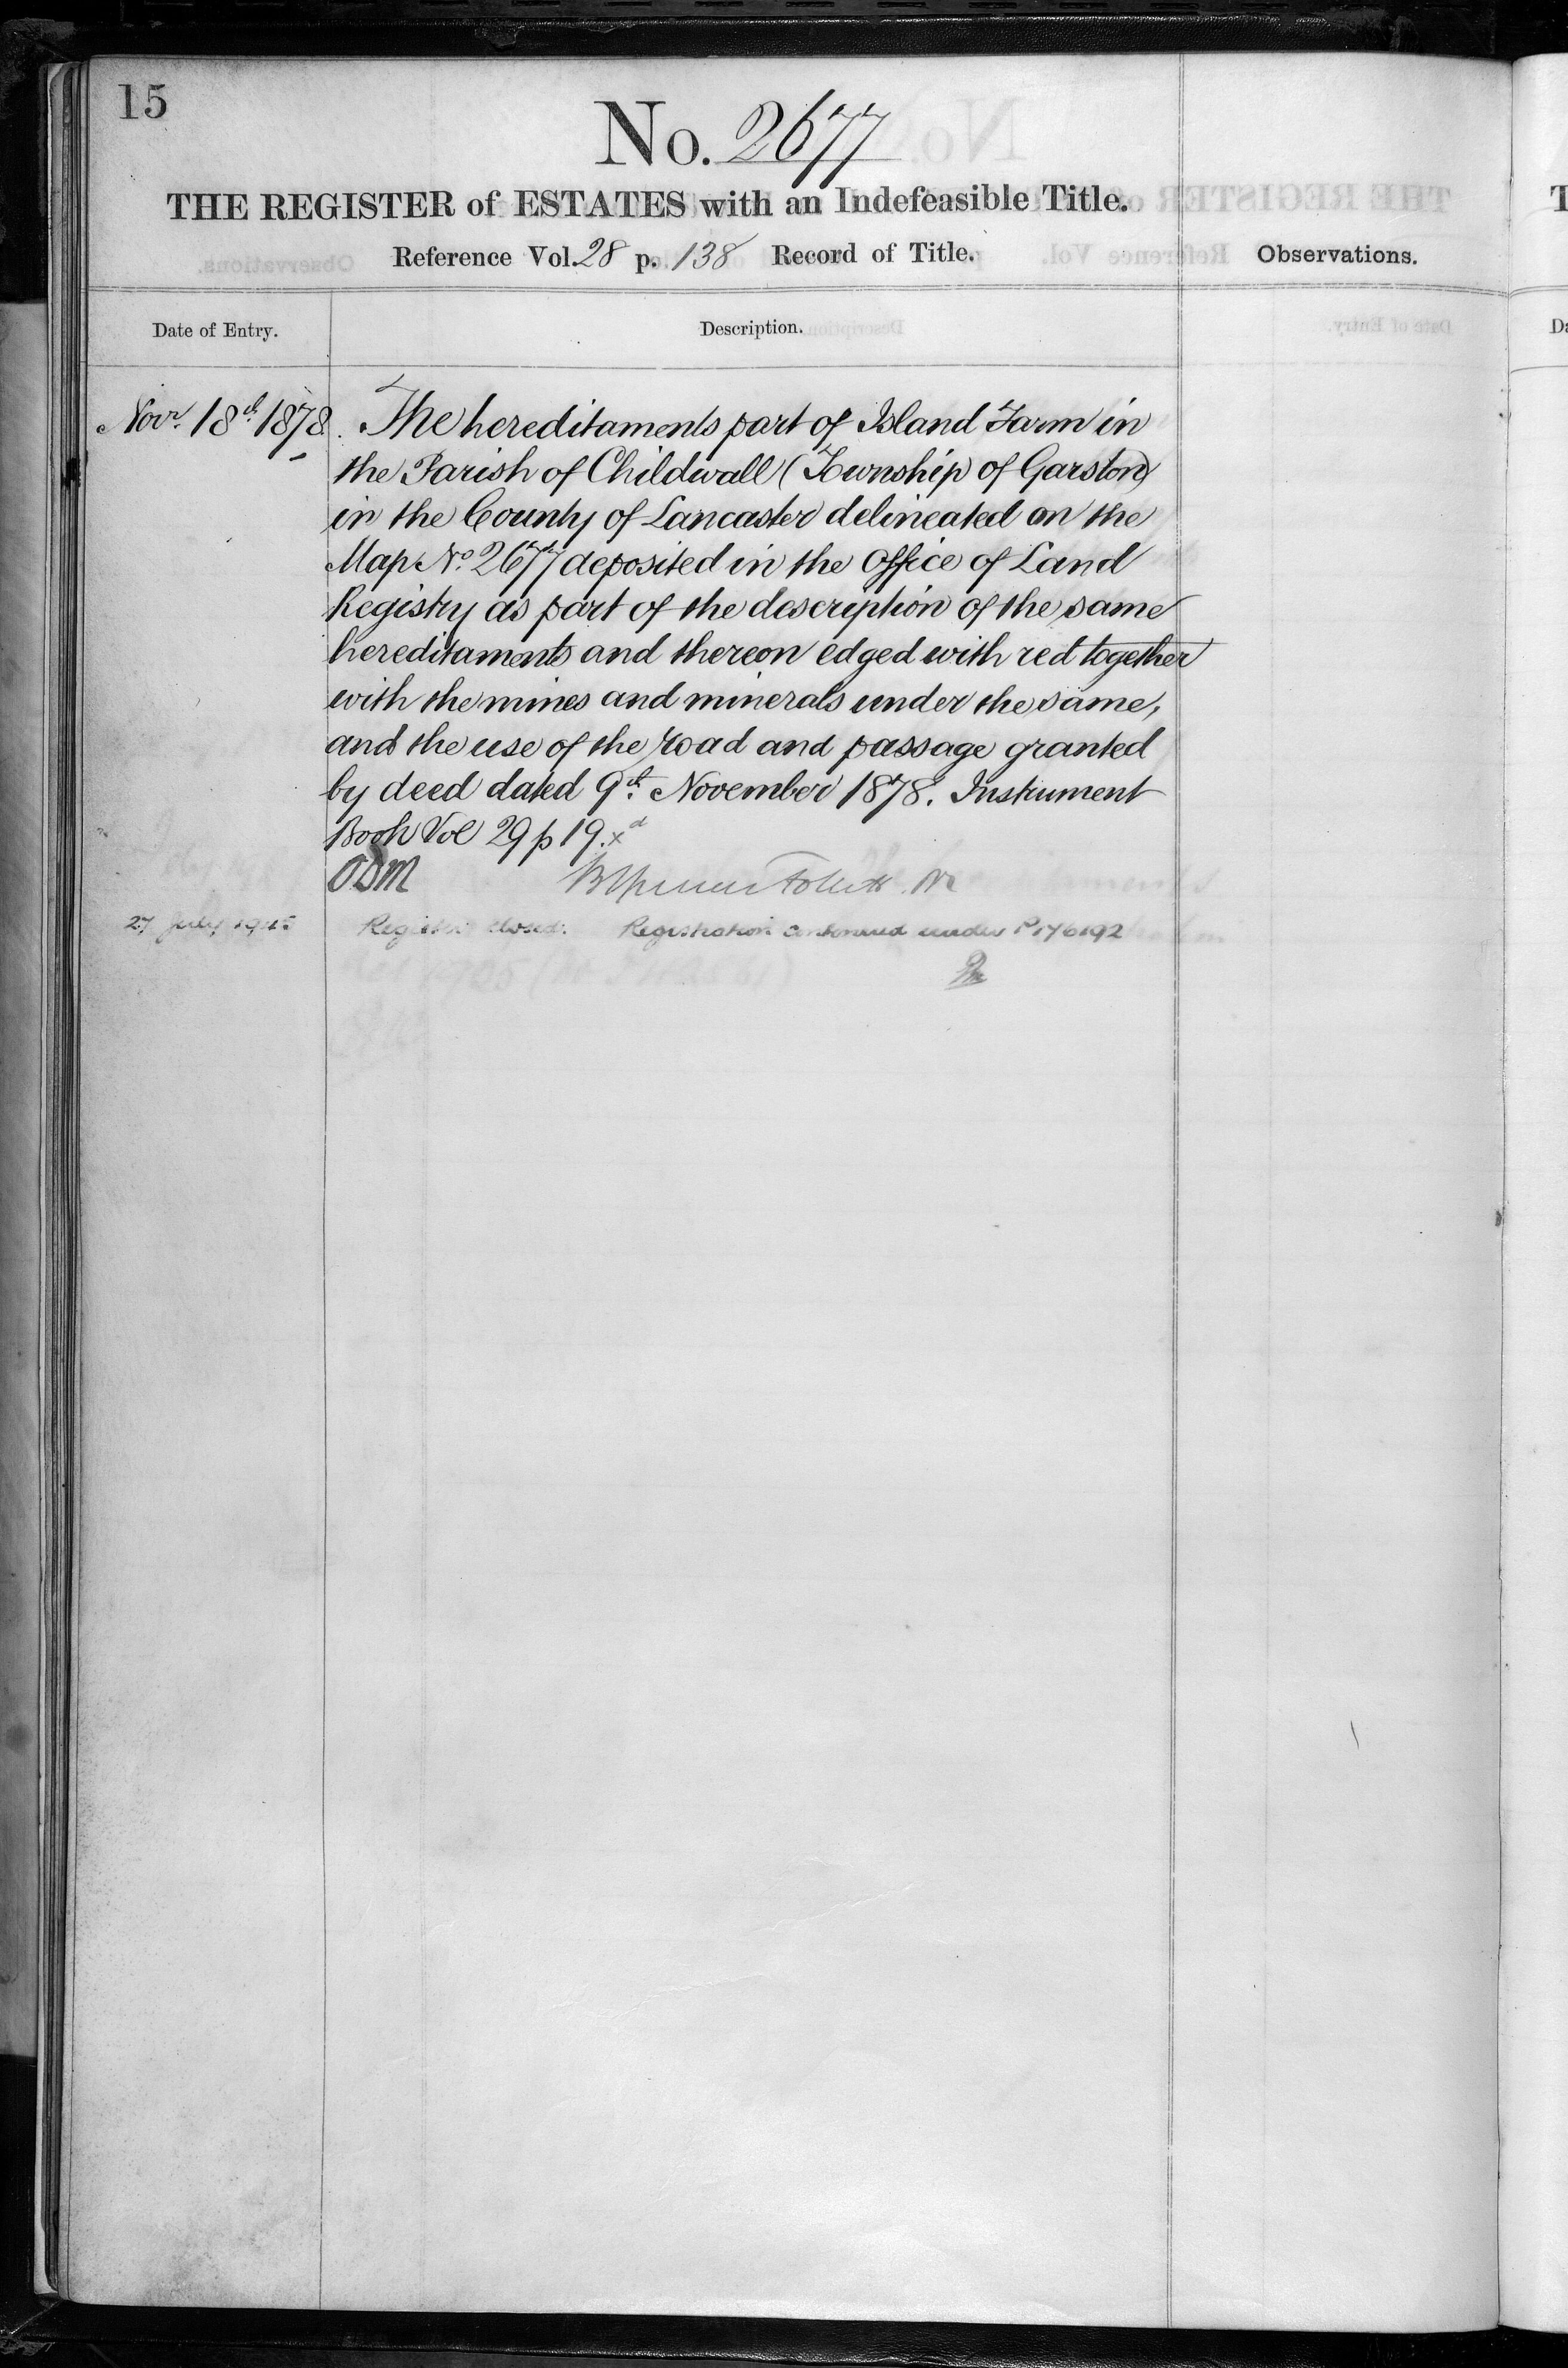 15
No. 2677
THE REGISTER of ESTATES with an Indefeasible Title.
Reference Vol. 28 p. 138 Record of Title.
Observations.
Date of Entry.
Description.
Novr. 18th 1878. The hereditaments part of Island Farm in
the Parish of Childwall (Township of Garston)
in the County of Lancaster delineated on the
Map No. 2677 deposited in the Office of Land
Registry as part of the description of the same
hereditaments and thereon edged with red together
with the mines and minerals under the same,
and the use of the road and passage granted
by deed dated 9th November 1878. Instrument
Book Vol 29 p 19. xd
27 July Register closed. Registration continued under P176192